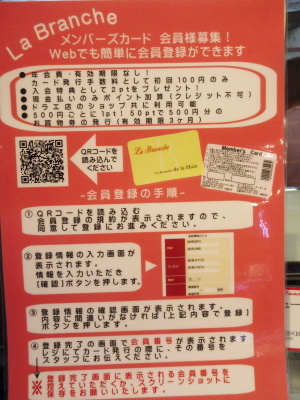 La Branche
メンバーズカード 会員様募集！
Webでも簡単に会員登録ができます
●年会費・有効期限なし！
カード発行手数料として初回100円のみ
●入会特典として2ptをプレゼント！
●現金払いのみポイント加算(クレジット不可)
●ドラエ店のショップ共に利用可能
●500円ごとに1pt！50ptで500円分の
お買物券の発行(有効期限3ヶ月)
QRコードを
読み込んで
ください
La Branche
Member's Card
-会員登録の手順-
①QRコードを読み込む
会員登録の規約が表示されますので、
同意して登録にお進みください。
②登録情報の入力画面が
表示されます。
情報を入力いただき
[確認]ボタンを押します。
③登録情報の確認画面が表示されます。
内容に間違いがなければ[上記内容で登録]
ボタンを押します。
④登録完了の画面で会員番号が表示されます
レジにてカード発行の際に、その番号を
スタッフにお伝えください。
※登録完了画面に表示される会員番号を
控えていただくか、スクリーンショットに
保存をお願いいたします。